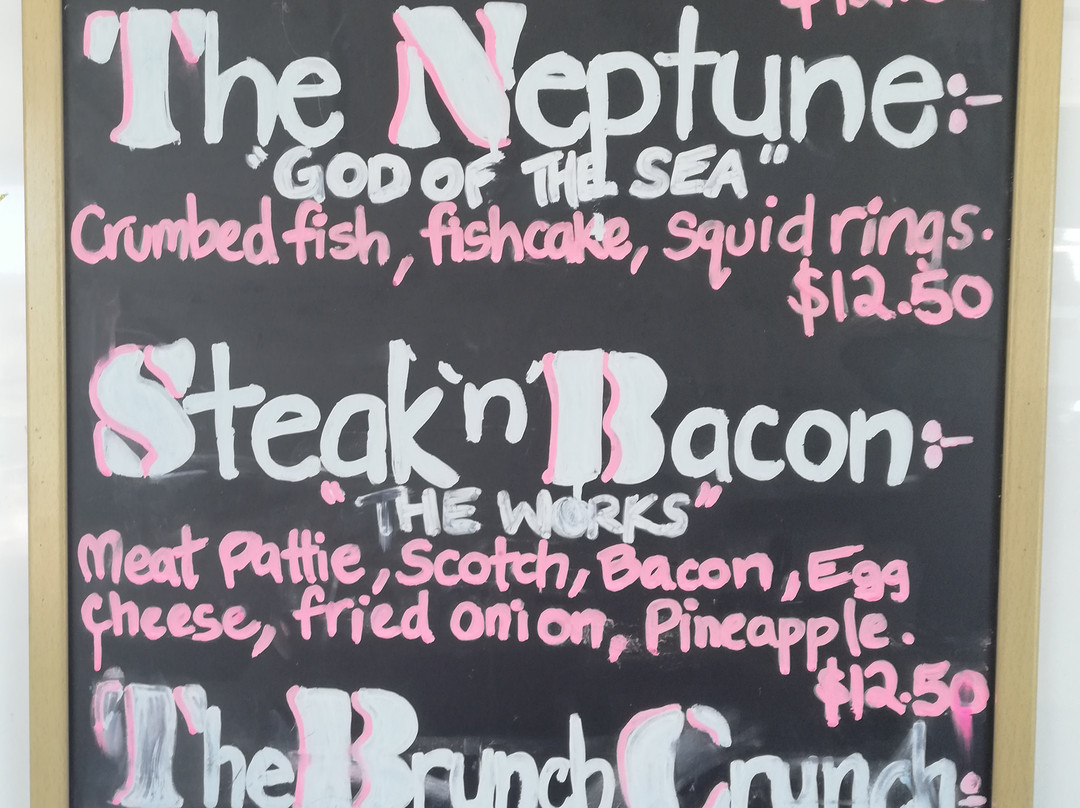 The Neptune:-
"GOD OF THE SEA"
Crumbed fish, fishcake, Squid rings.
$12.50
Steak 'n' Bacon:-
"THE WORKS"
Meat Pattie, Scotch, Bacon, Egg
cheese, fried onion, Pineapple.
$12.50
The Brunch Crunch: